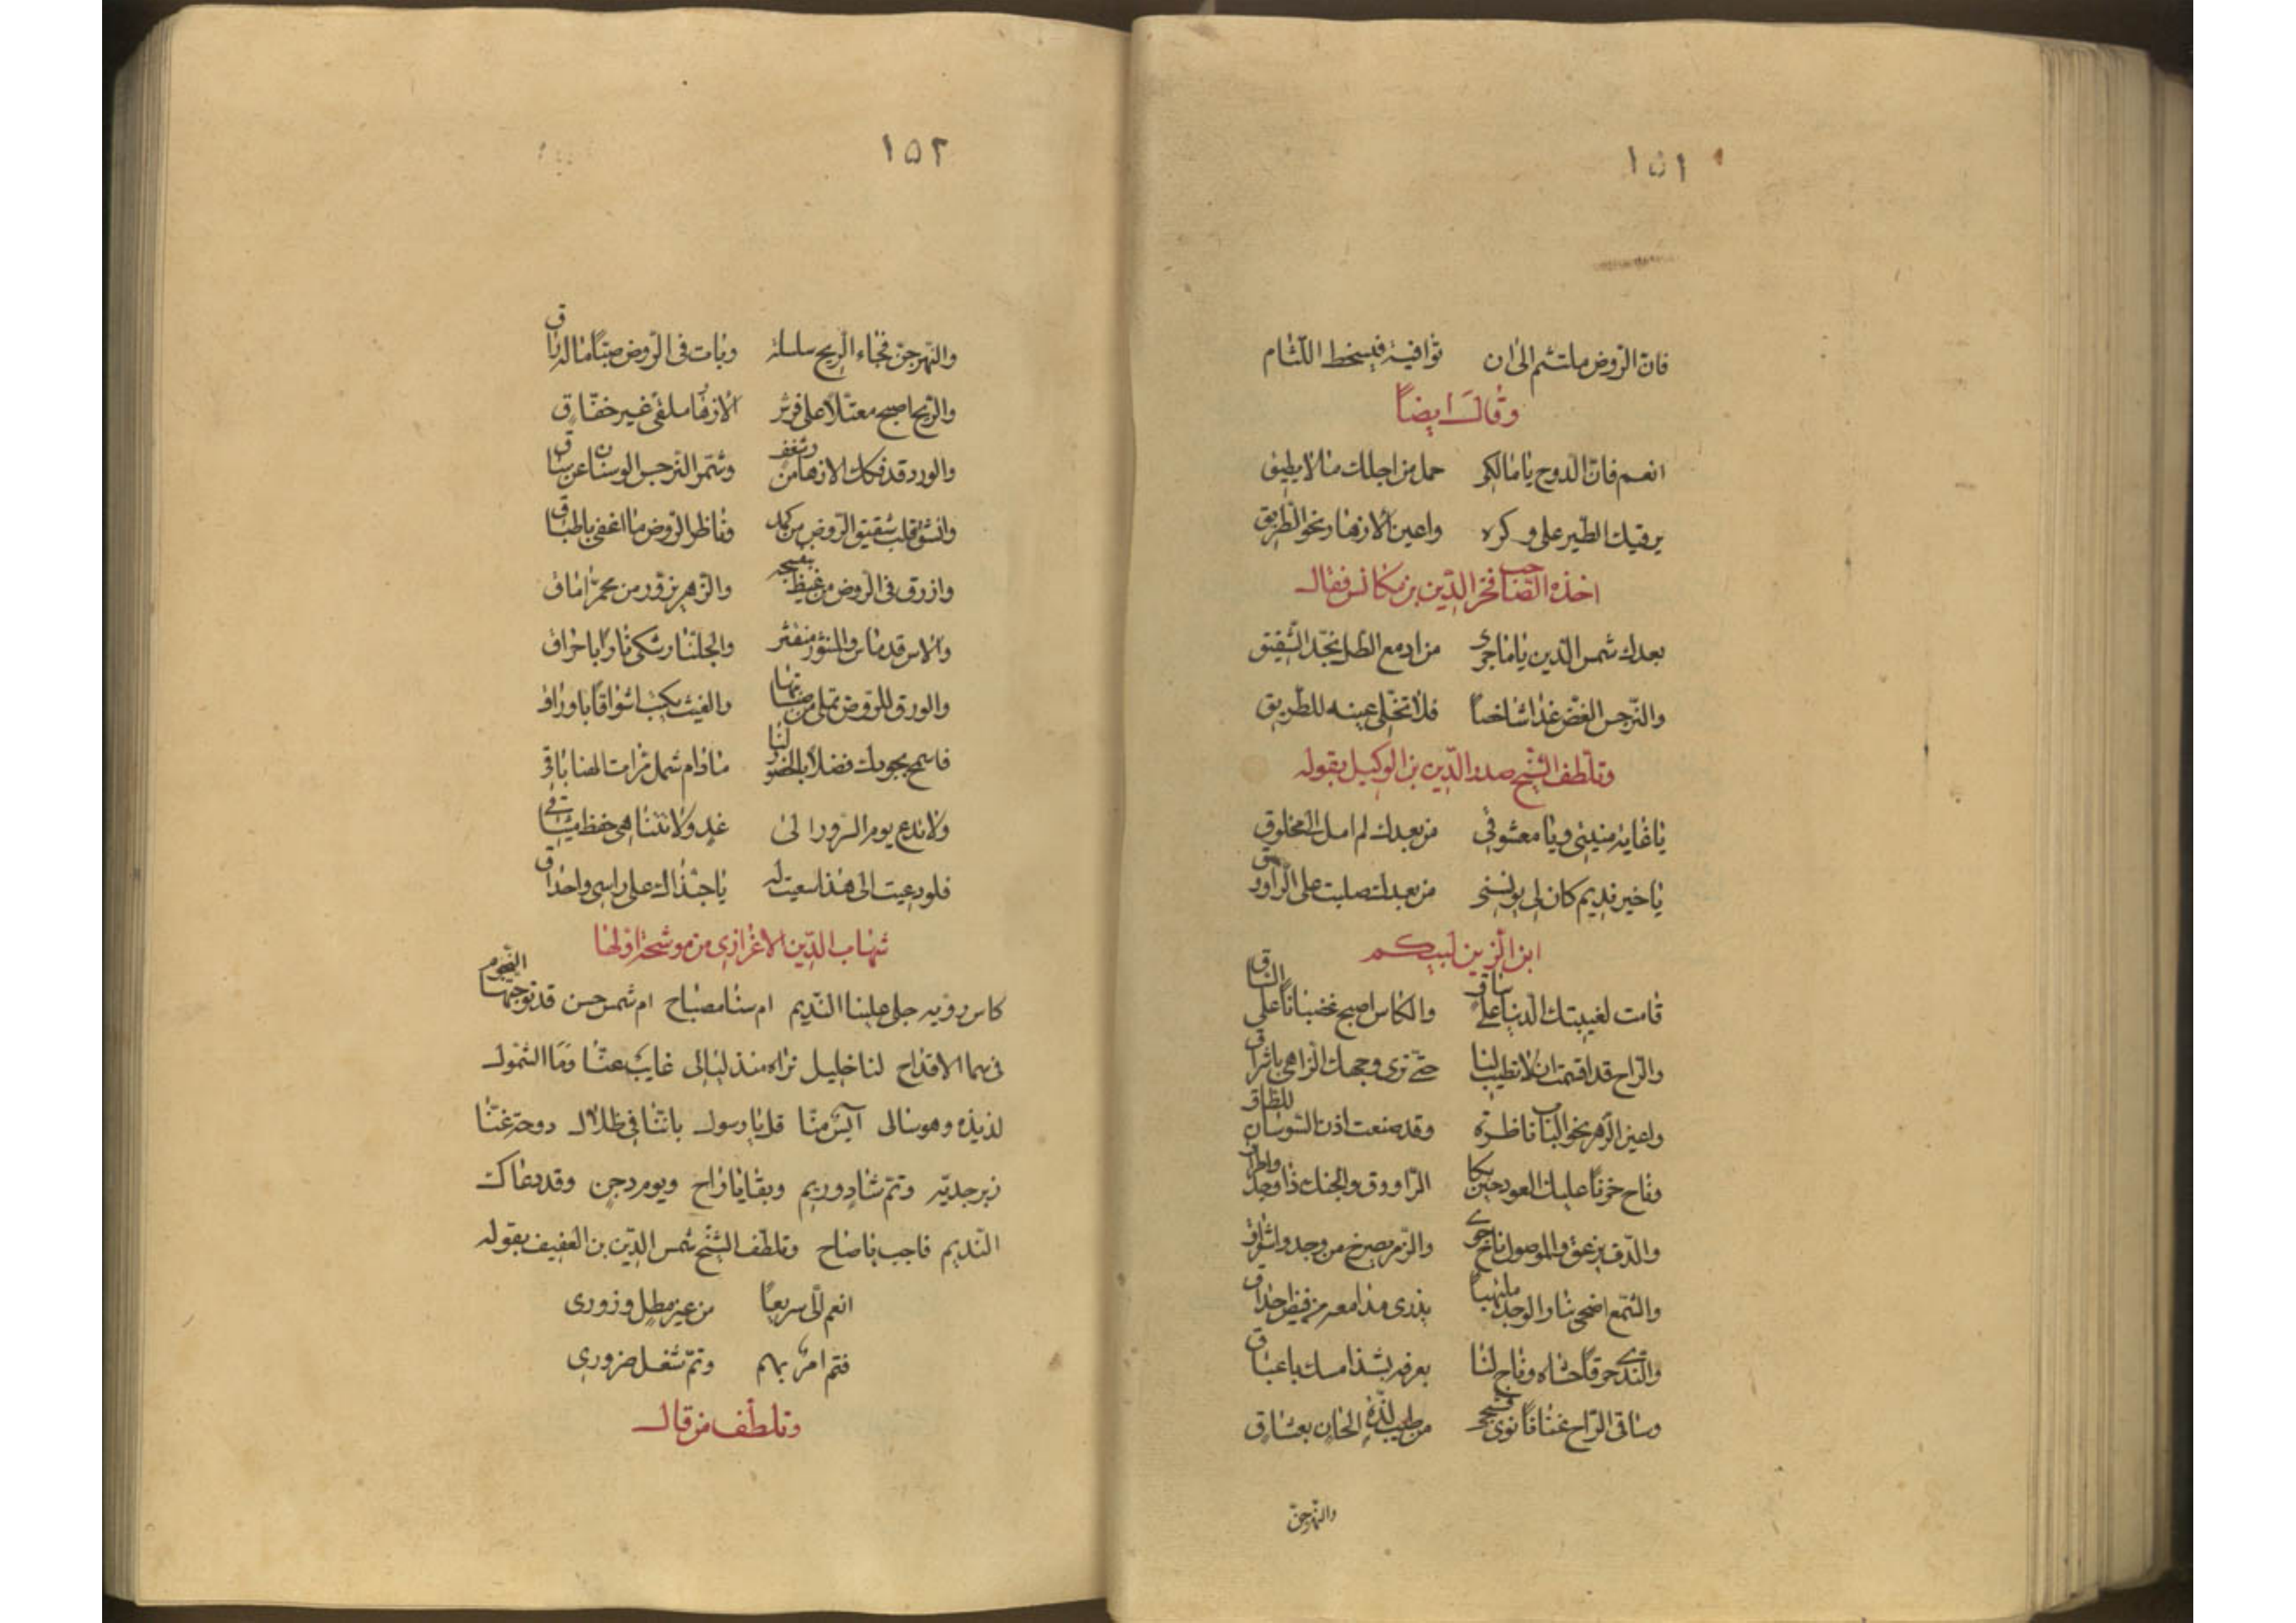 ١٥١
فان الروض ملتثم الى ان توافيه فيسخط اللثام
وقال ايضاً
انعم فان الدوح يا مالكى حمل من اجلك ما لا يطيق
يرقيك الطير على وكره واعين الازهار نحو الطريق
اخذه الصاحب فخر الدين بن مكانس فقال
بعدك شمس الدين ياما جرى من ادمع الطل بخد الشقيق
والنرجس الغض غدا شاخصاً فلا تخلى عينه للطريق
وتلطف الشيخ صدر الدين بن الوكيل بقوله
يا غاية منيتى ويا معشوقى من بعدك لم امل الى مخلوق
يا خير نديم كان لى يونسنى من بعدك صلبت على الراووق
ابن الزين لبيكم
قامت لغيبتك الدنيا على ساق والكاس اصبح غضباناً على الساق
والراح قد اقسمت ان لا تطيب لنا حتى نرى وجهك الزاهى باشراق
واعين الزهر نحو الباب ناظرة وقد صنعت اذن السوسان للطاق
وناح حزناً عليك العود حين بكا الراووق والجنك ذا وجد واطراق
والدف يزعق والموصول ناح جوى والزمر يصرخ من وجد واشواق
والشمع اضحى بنار الوجد ملتهباً يذرى مدامعه من فيض احداق
والند حرقاً حشاه وفاح لنا بعرفه بشذا مسك باعباق
وساقى الراح غنانا نوى فشجى من طيب لذة الحان بعشاق
والنهر جن
١٥٢
والنهر جن فجاء الريح سلسله وبات فى الروض صباً ما له راق
والريح اصبح معتلاً على فرش الازهار ملقى غير خفاق
والورد قد فكك الازهار من شغف وشمر النرجس الوسنان عن ساق
وانشق قلب شقيق الروض من كمد وناظر الروض ما اغفى باطباق
وازرق فى الروض من غيظ بنفسجه والزهر يزور من محمر اماق
والاس قد ماس والمنثور منتثر والجلنار شكى ناراً باحراق
والورق للروض تملى من صبابتها والغيث يكتب اشواقاً باوراق
فاسمح بجودك فضلاً بالحضور لنا ما دام شمل ثمرات الهنا باقى
ولا تدع يوم السرور الى غد ولا تتناهى حفظ ميثاقى
فلو دعيت الى هذا سعيت له يا حبذاك على راسى واحداق
شهاب الدين الاعزازى من موشحة اولها
كاس رويه جلى علينا النديم ام سنا مصباح ام شمس حسن قد توجتها النجوم
فى سما الاقداح لنا خليل نراه منذ ليالى غايب عنا وما الشمول
لذيذه وهو سالى آيس منا قل يا رسول باتنا فى ظلال دوحة غنا
زبرجديه وتم شادٍ وريم وبقايا راح ويوم دجن وقد دعاك
النديم فاجب يا صاح وتلطف الشيخ شمس الدين بن العفيف بقوله
انعم الى سريعاً من غير مطل وزورى
فتم امر بهم وتم شغل ضرورى
وتلطف من قال